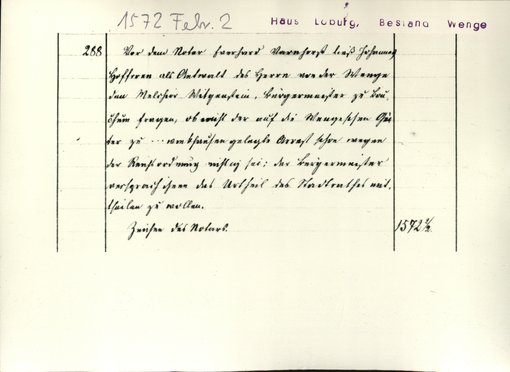 1572 Febr. 2
Haus Loburg, Bestand Wenge
288 Vor dem Notar Everhard Varnhorst ließ Johannes
Hofferen als Anwalt des Herrn von der Wenge
den Melchior Witgenstein, Bürgermeister zu Bou-
chum fragen, ob nicht der auf die Wengeschen Gü-
ter zu ... gelegte Arrest schon wegen
der Rechtsordnung nichtig sei; der Bürgermeister
versprach ihnen das Urtheil des Stadtrathes mit-
theilen zu wollen.
Zeichen des Notars. 1572 2/2